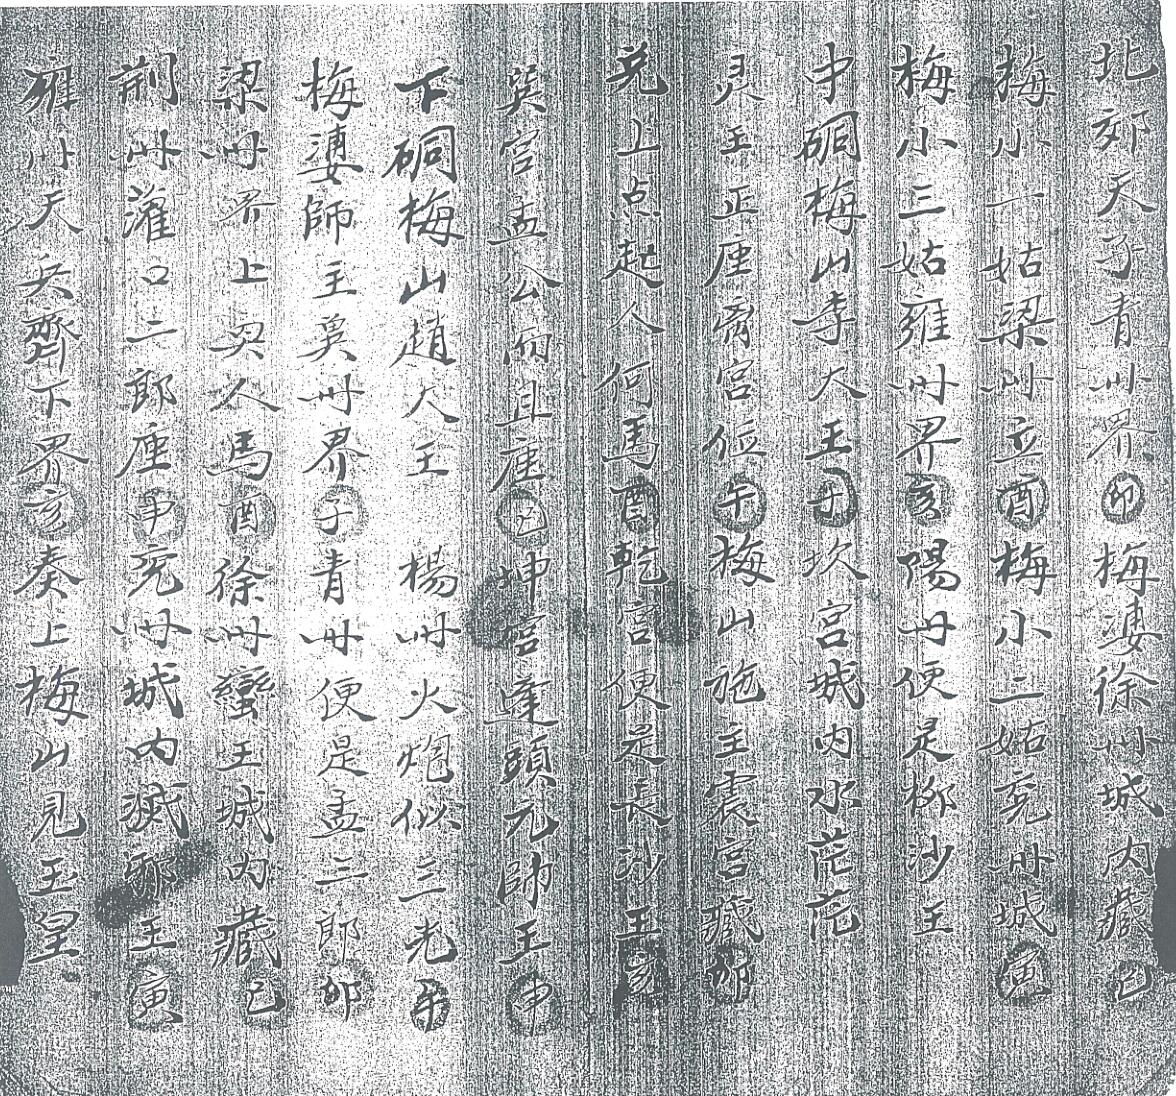 北郊天子青州界卯梅婆徐州城内藏巳
梅小一姑梁州立酉梅小二姑兖州城寅
梅小三姑雍州界亥陽州便是柳沙王
中硐梅山李大王子坎宫城内水茫茫
灵王正座离宫位午梅山施主震宫藏卯
兑上点起人何馬酉乾宫便是長沙王亥
巽宫孟公而且座巳坤宫蓬頭元帥王申
下硐梅山趙大王 楊州火炮似三光午
梅婆師主冀州界子青州便是孟三郎卯
梁州界上兵人馬酉徐州蠻王城内藏巳
荊州灌口二郎座申兖州城内滅邪王寅
雍州天兵齊下界亥奏上梅山見玉皇